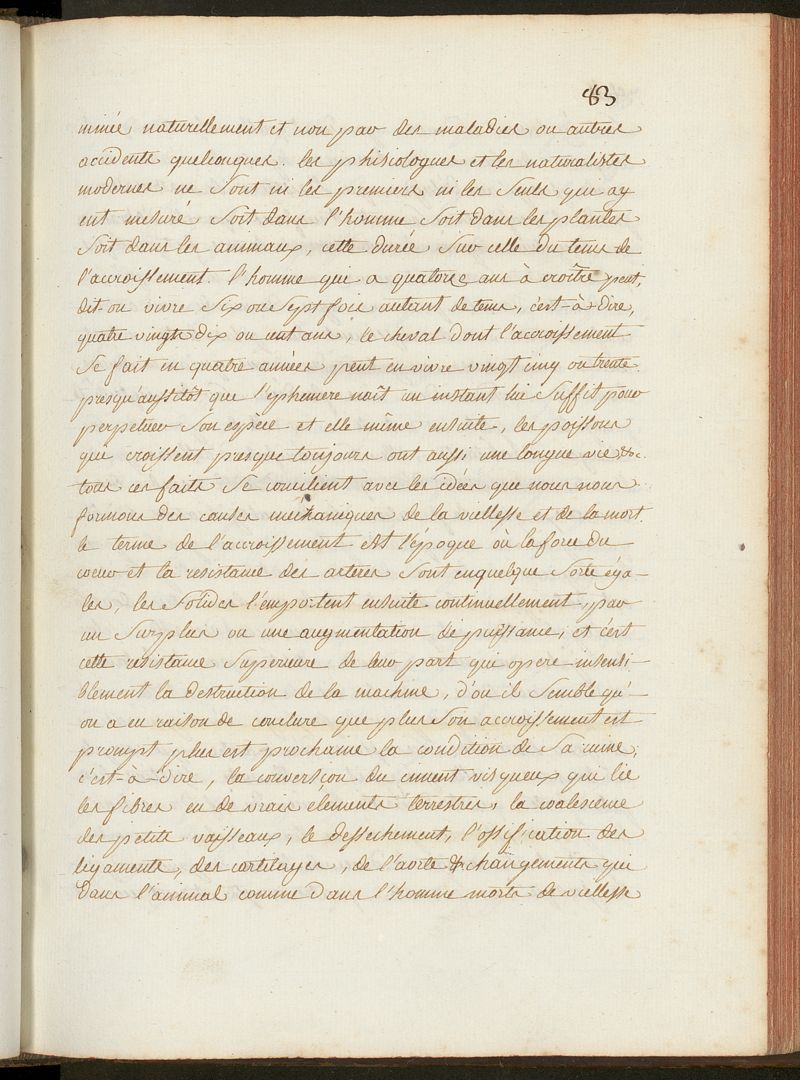 83
minée naturellement et non par des maladies ou autres
accidents quelconques. les phisiologues et les naturalistes
modernes ne sont ni les premiers ni les seuls qui ay
ent mesuré soit dans l'homme soit dans les plantes
soit dans les animaux, cette durée sur celle du tems de
l'accroissement. l'homme qui a quatorze ans à croître peut,
dit-on vivre six ou sept fois autant de tems, c'est-à-dire,
quatre vingt dix ou cent ans, le cheval dont l'accroissement
se fait en quatre années peut en vivre vingt cinq ou trente
presqu'aussitôt que l'ephemere naît un instant lui suffit pour
perpetuer son espèce et elle même ensuite, les poissons
qui croissent presque toujours ont aussi une longue vie &c.
tous ces faits se concilient avec les idées que nous nous
formons des causes méchaniques de la viellesse et de la mort.
le terme de l'accroissement est l'époque où la force du
coeur et la resistance des arteres sont en quelque sorte éga-
les, les solides l'emportent ensuite continuellement, par
un surplus ou une augmentation de puissance, et c'est
cette resistance superieure de leur part qui opere insensi-
blement la destruction de la machine, d'où il semble qu'-
on a eu raison de conclure que plus son accroissement est
prompt plus est prochaine la condition de sa ruine,
c'est-à-dire, la conversion du ciment visqueux qui lie
les fibres en de vrais elements terrestres, la coalescence
des petits vaisseaux, le dessechement, l'ossification des
ligaments, des cartilages, de l'aorte &c changements qui
dans l'animal comme dans l'homme morts de viellesse